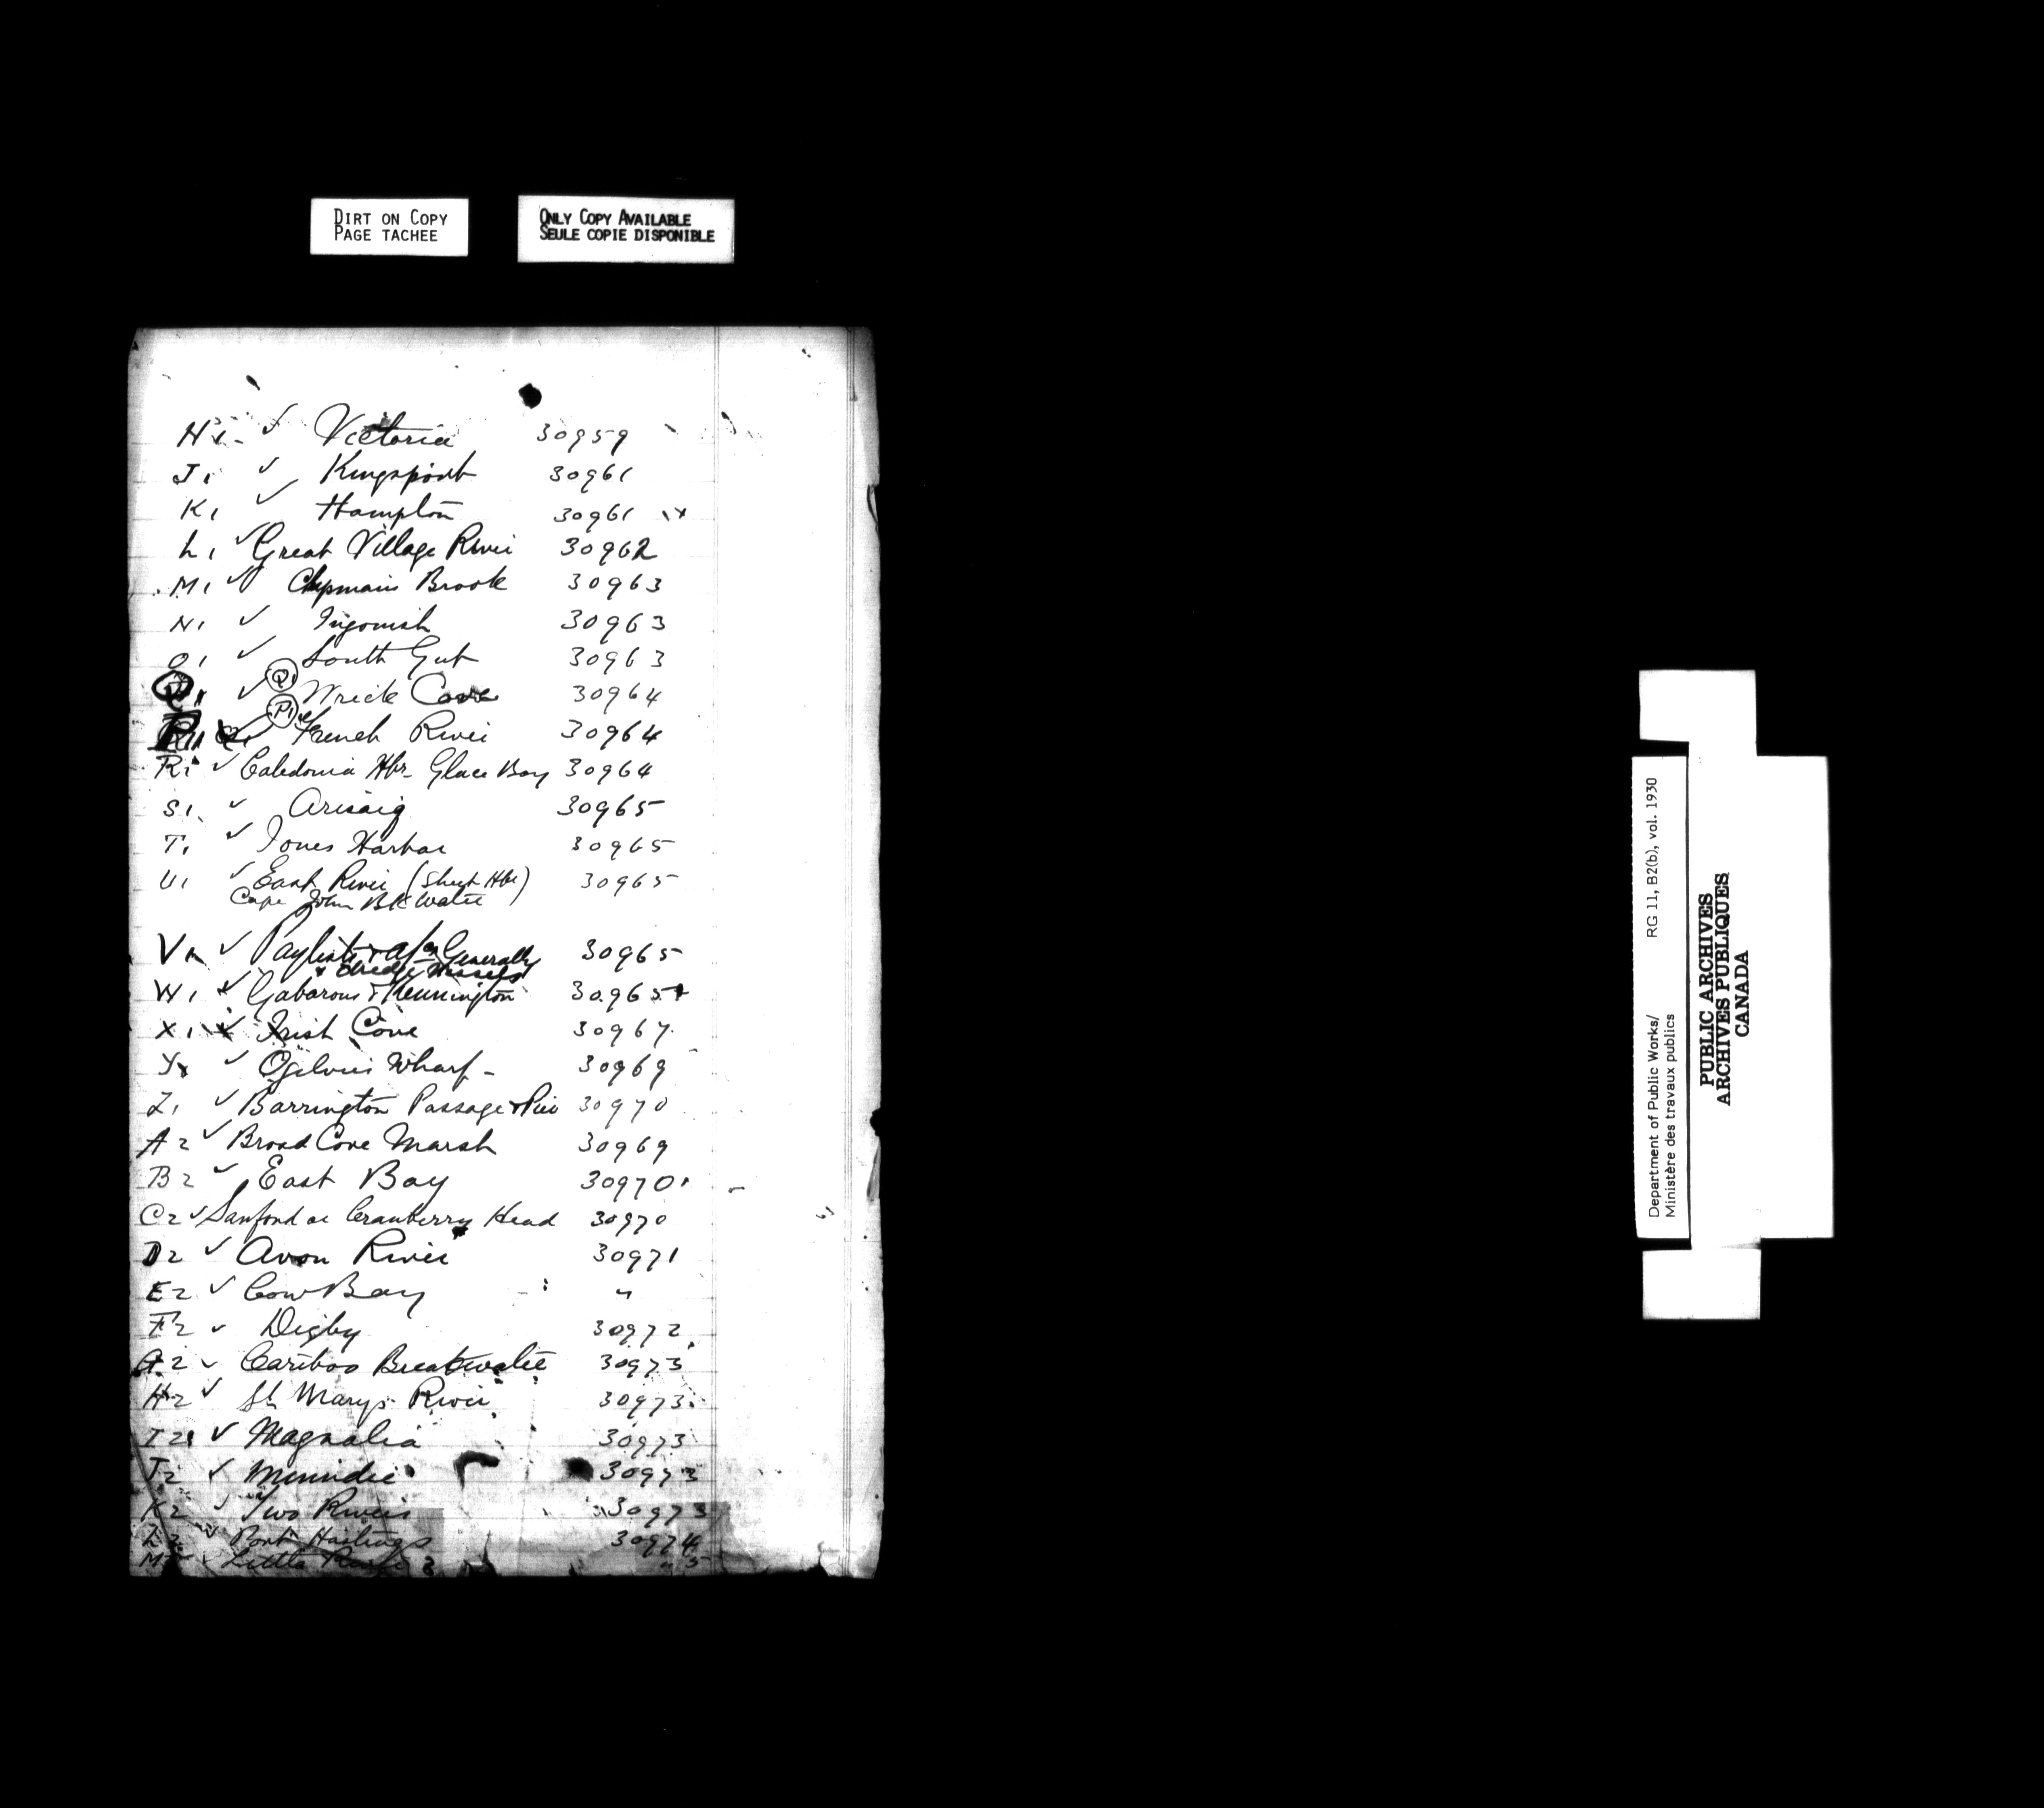 DIRT ON COPY
PAGE TACHEE
ONLY COPY AVAILABLE
SEULE COPIE DISPONIBLE
H1 - ✓ Victoria 30959
J1 ✓ Kingsport 30961
K1 ✓ Hampton 30961
L1 ✓ Great Village River 30962
M1 ✓ Chipmans Brook 30963
N1 ✓ Ingonish 30963
O1 ✓ South Gut 30963
Q1 ✓ Q1 Wreck Cove 30964
P1 ✓ P1 French River 30964
R1 ✓ Caledonia Hbr - Glace Bay 30964
S1 ✓ Arisaig 30965
T1 ✓ Jones Harbor 30965
U1 ✓ East River (Sheet Hbr) 30965
Cape John Bk Water
V1 ✓ Paylists & a/cs Generally 30965
& dredge vessels
W1 ✓ Gabarous & Kennington 30965
X1 ✓ Irish Cove 30967
Y1 ✓ Ogilvies Wharf - 30969
Z1 ✓ Barrington Passage & Pier 30970
A2 ✓ Broad Cove Marsh 30969
B2 ✓ East Bay 30970
C2 ✓ Sanford or Cranberry Head 30970
D2 ✓ Avon River 30971
E2 ✓ Cow Bay "
F2 ✓ Digby 30972
G2 ✓ Cariboo Breakwater 30973
H2 ✓ St Marys River 30973
I2 ✓ Magnalia 30973
J2 ✓ 30973
K2 ✓ Two Rivers 30973
L2 ✓ Port Hastings 30974
M2 ✓ Little " 5
Department of Public Works/ RG 11, B2(b), vol. 1930
Ministère des travaux publics
PUBLIC ARCHIVES
ARCHIVES PUBLIQUES
CANADA